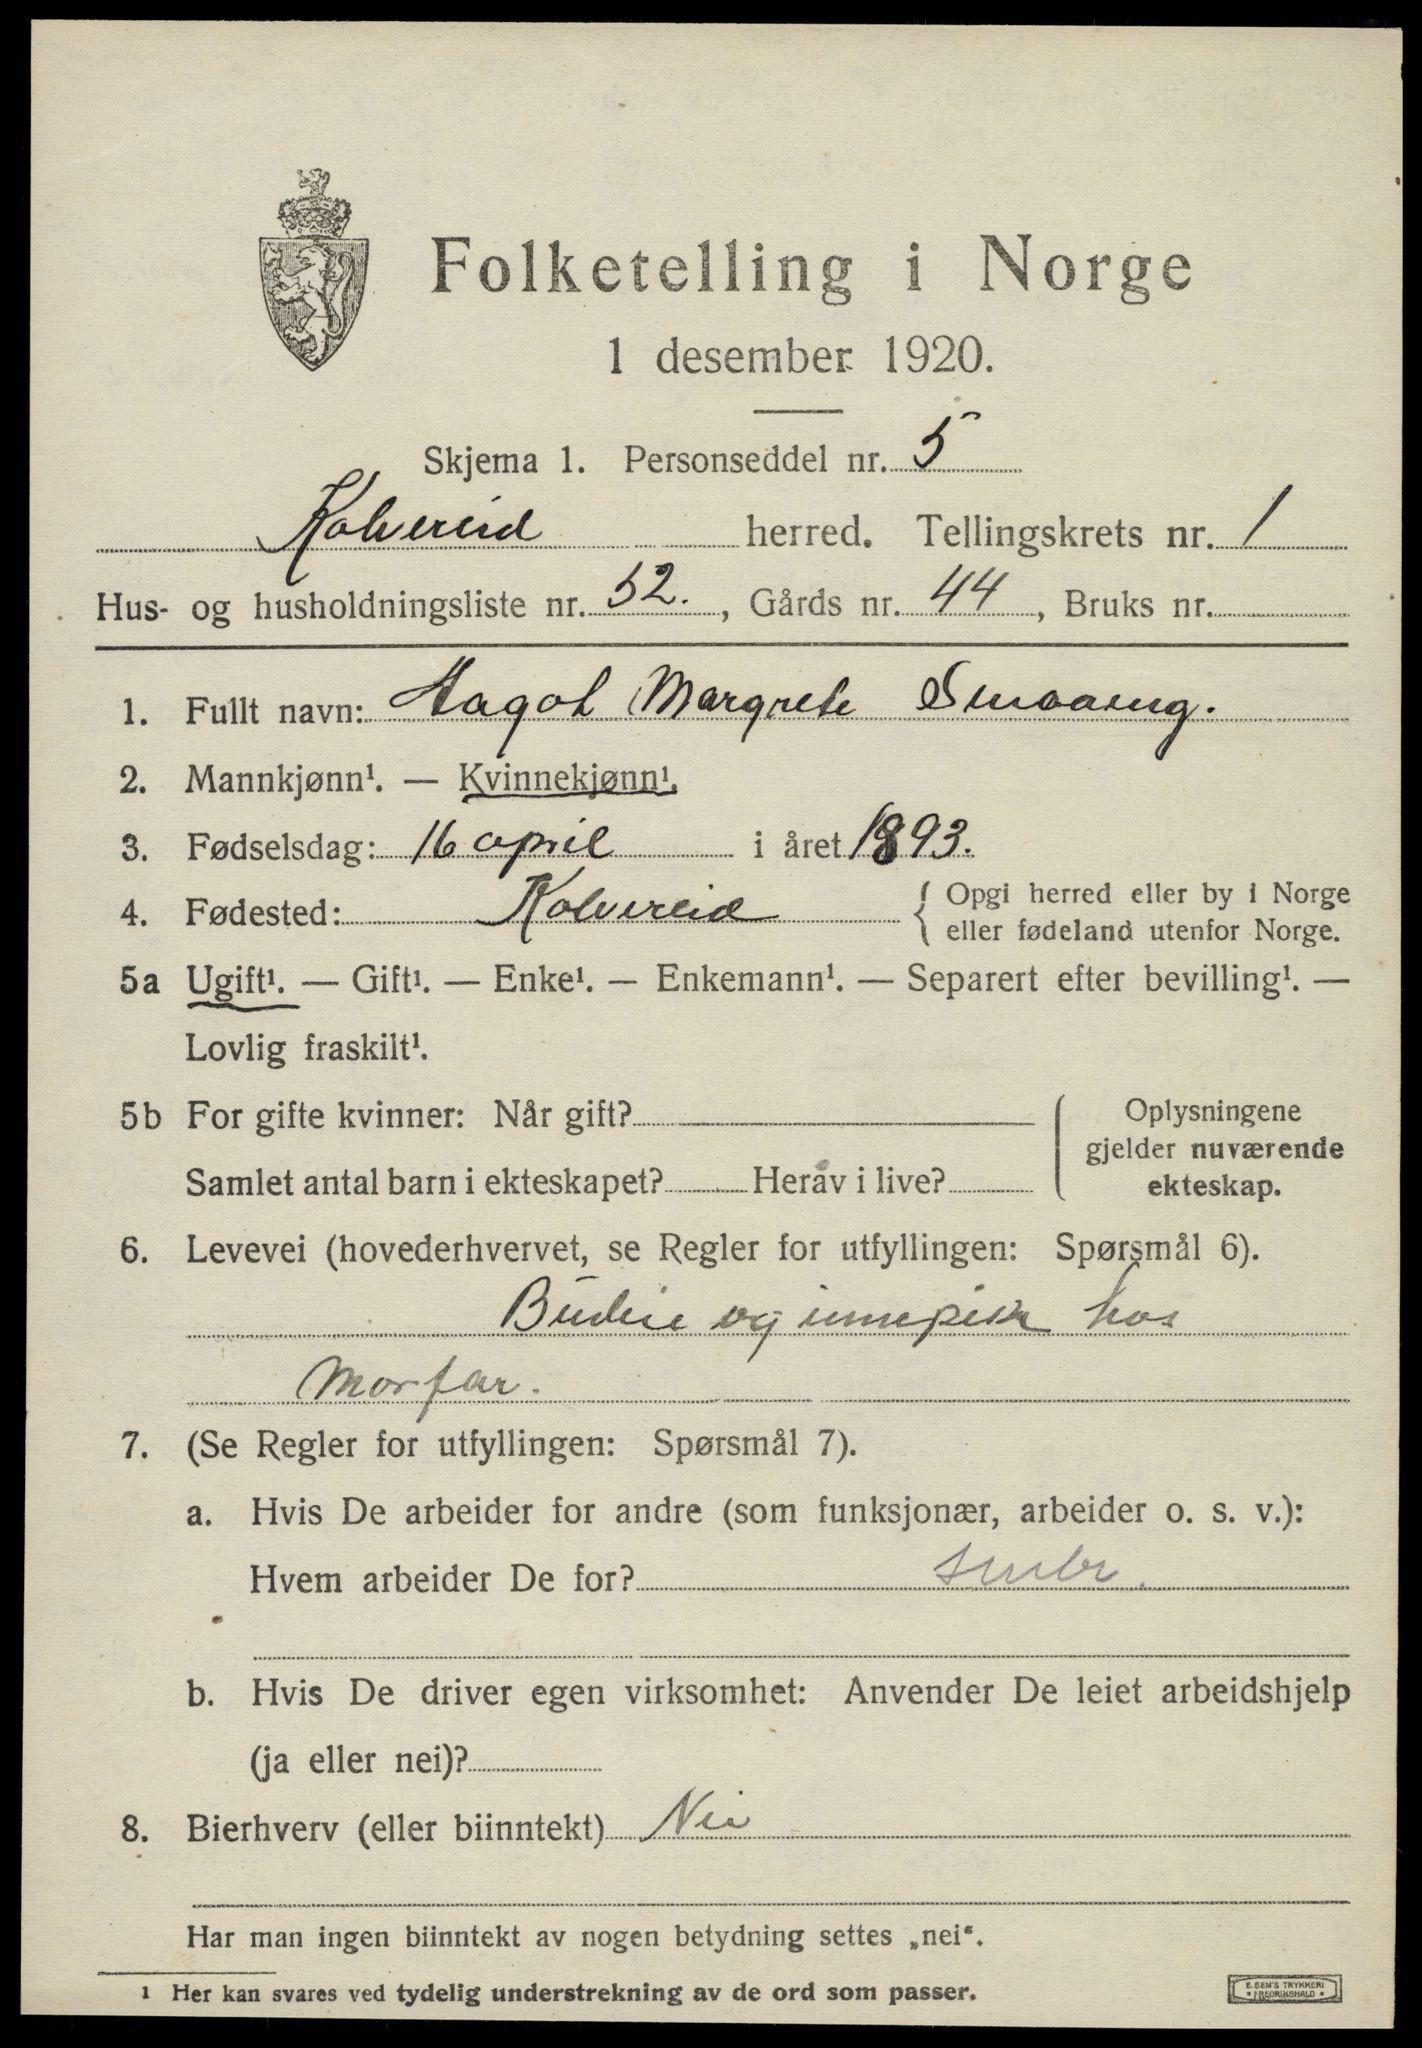 Folketelling i Norge
1 desember 1920.
Skjema 1. Personseddel nr. 5
Kolvereid herred. Tellingskrets nr. 1
Hus- og husholdningsliste nr. 52., Gårds nr. 44, Bruks nr.
1. Fullt navn: Hagot Margrete Smaaeng.
2. Mannkjønn¹. — Kvinnekjønn¹.
3. Fødselsdag: 16 april i året 1893.
4. Fødested: Kolvereid { Opgi herred eller by i Norge
eller fødeland utenfor Norge.
5a Ugift¹. — Gift¹. — Enke¹. — Enkemann¹. — Separert efter bevilling¹. —
Lovlig fraskilt¹.
5b For gifte kvinner: Når gift? Oplysningene
gjelder nuværende
Samlet antal barn i ekteskapet? Herav i live? ekteskap.
6. Levevei (hovederhvervet, se Regler for utfyllingen: Spørsmål 6).
Budeie og innepike hos
Morfar.
7. (Se Regler for utfyllingen: Spørsmål 7).
a. Hvis De arbeider for andre (som funksjonær, arbeider o. s. v.):
Hvem arbeider De for?
b. Hvis De driver egen virksomhet: Anvender De leiet arbeidshjelp
(ja eller nei)?
8. Bierhverv (eller biinntekt) Nei
Har man ingen biinntekt av nogen betydning settes „nei“.
1 Her kan svares ved tydelig understrekning av de ord som passer.
E. SEM'S TRYKKERI
• FREDRIKSHALD •